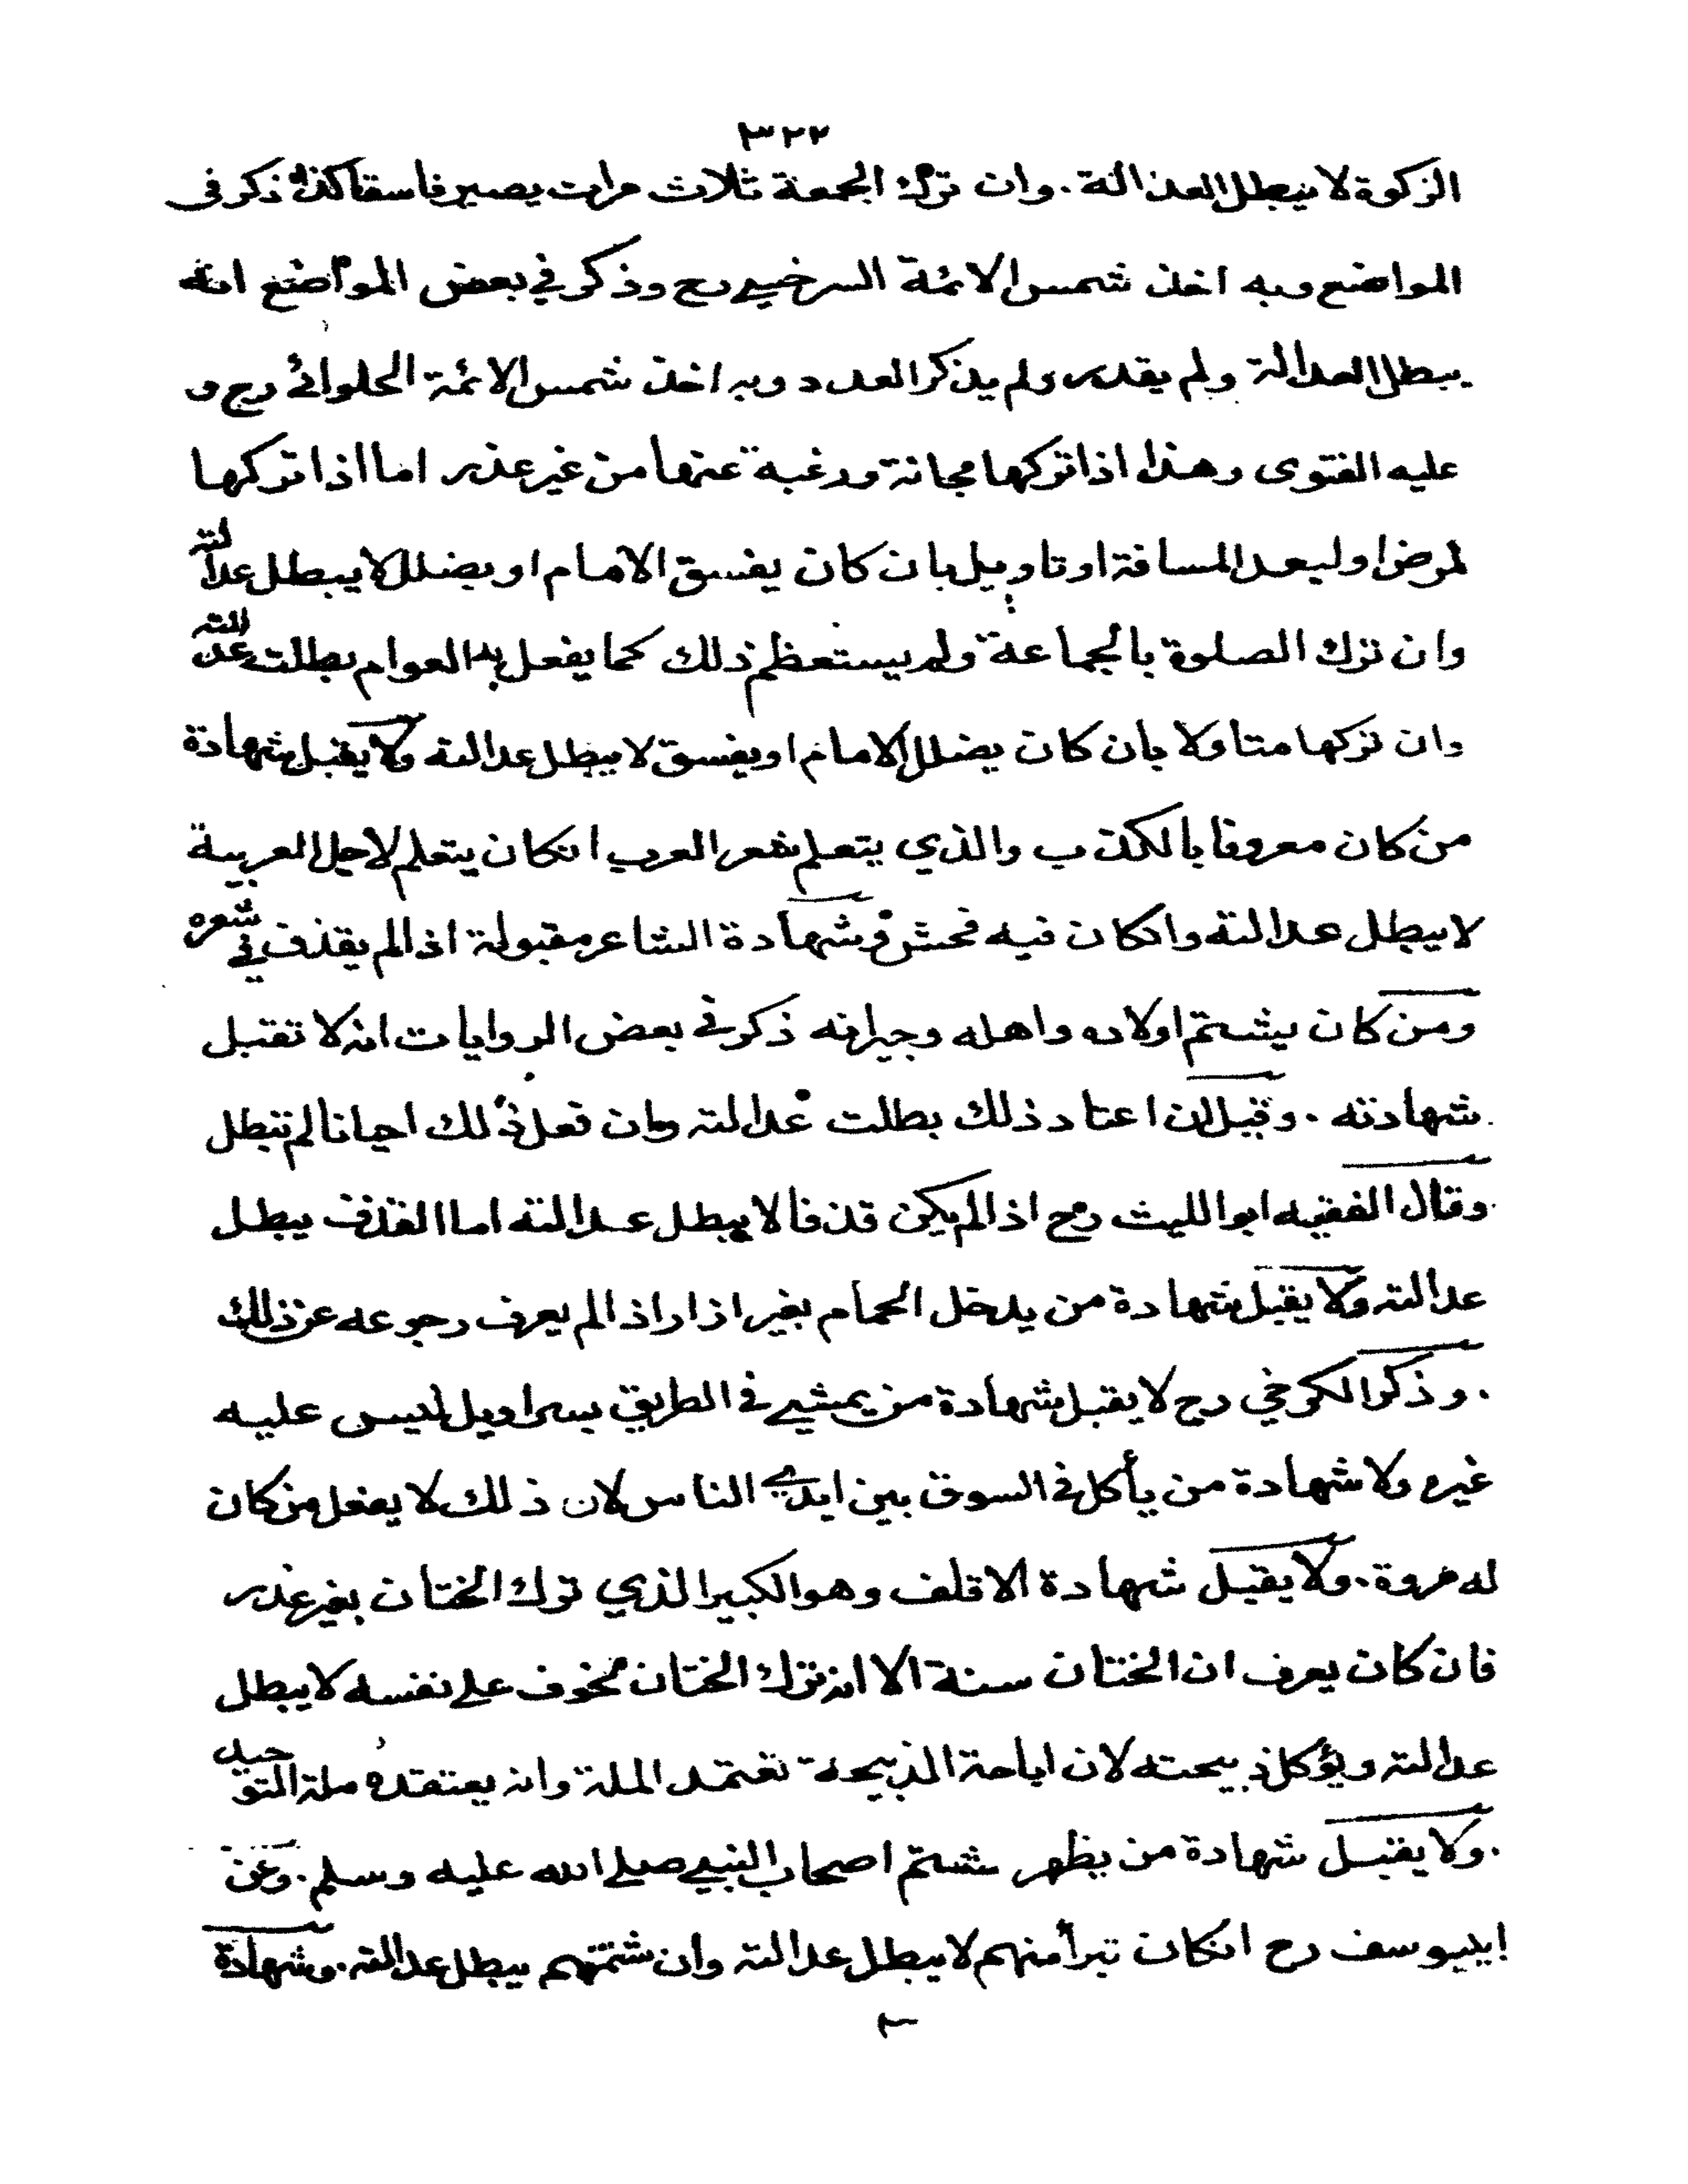 ٣٢٢
الزكوة لا يبطل العدالة . وان ترك الجمعة ثلاث مرات يصير فاسقا كذا ذكر في
المواضع وبه اخذ شمس الائمة السرخسي رح وذكر في بعض المواضع انه
يبطل العدالة ولم يقدر ولم يذكر العدد وبه اخذ شمس الائمة الحلوائي رح و
عليه الفتوى وهذا اذا تركها مجانة ورغبة عنها من غير عذر اما اذا تركها
لمرض او لبعد المسافة او تاويل بان كان يفسق الامام او يضلل لا يبطل عدالته
وان ترك الصلوة بالجماعة ولم يستعظم ذلك كما يفعل به العوام بطلت عدالته
وان تركها متاولا بان كان يضلل الامام او يفسق لا يبطل عدالته ولا يقبل شهادة
من كان معروفا بالكذب والذي يتعلم شعر العرب انكان يتعلم لاجل العربية
لا يبطل عدالته وانكان فيه فحش وشهادة الشاعر مقبولة اذا لم يقذف في شعره
ومن كان يشتم اولاده واهله وجيرانه ذكر في بعض الروايات انه لا تقبل
شهادته . وقيل ان اعتاد ذلك بطلت عدالته وان فعل ذلك احيانا لم تبطل
وقال الفقيه ابو الليث رح اذا لم يكن قذفا لا يبطل عدالته اما القذف يبطل
عدالته ولا يقبل شهادة من يدخل الحمام بغير ازار اذا لم يعرف رجوعه عن ذلك
. وذكر الكرخي رح لا يقبل شهادة من يمشي في الطريق بسراويل ليس عليه
غيره ولا شهادة من يأكل في السوق بين ايدي الناس لان ذلك لا يفعل من كان
له مروة . ولا يقبل شهادة الاقلف وهو الكبير الذي ترك الختان بغير عذر
فان كان يعرف ان الختان سنة الا انه ترك الختان لخوف على نفسه لا يبطل
عدالته ويؤكل ذبيحته لان اباحة الذبيحة تعتمد الملة وانه يعتقد ملة التوحيد
. ولا يقبل شهادة من يظهر شتم اصحاب النبي صلى الله عليه وسلم . وعن
ابي يوسف رح انكان تبرأ منهم لا يبطل عدالته وان شتمهم يبطل عدالته . وشهادة